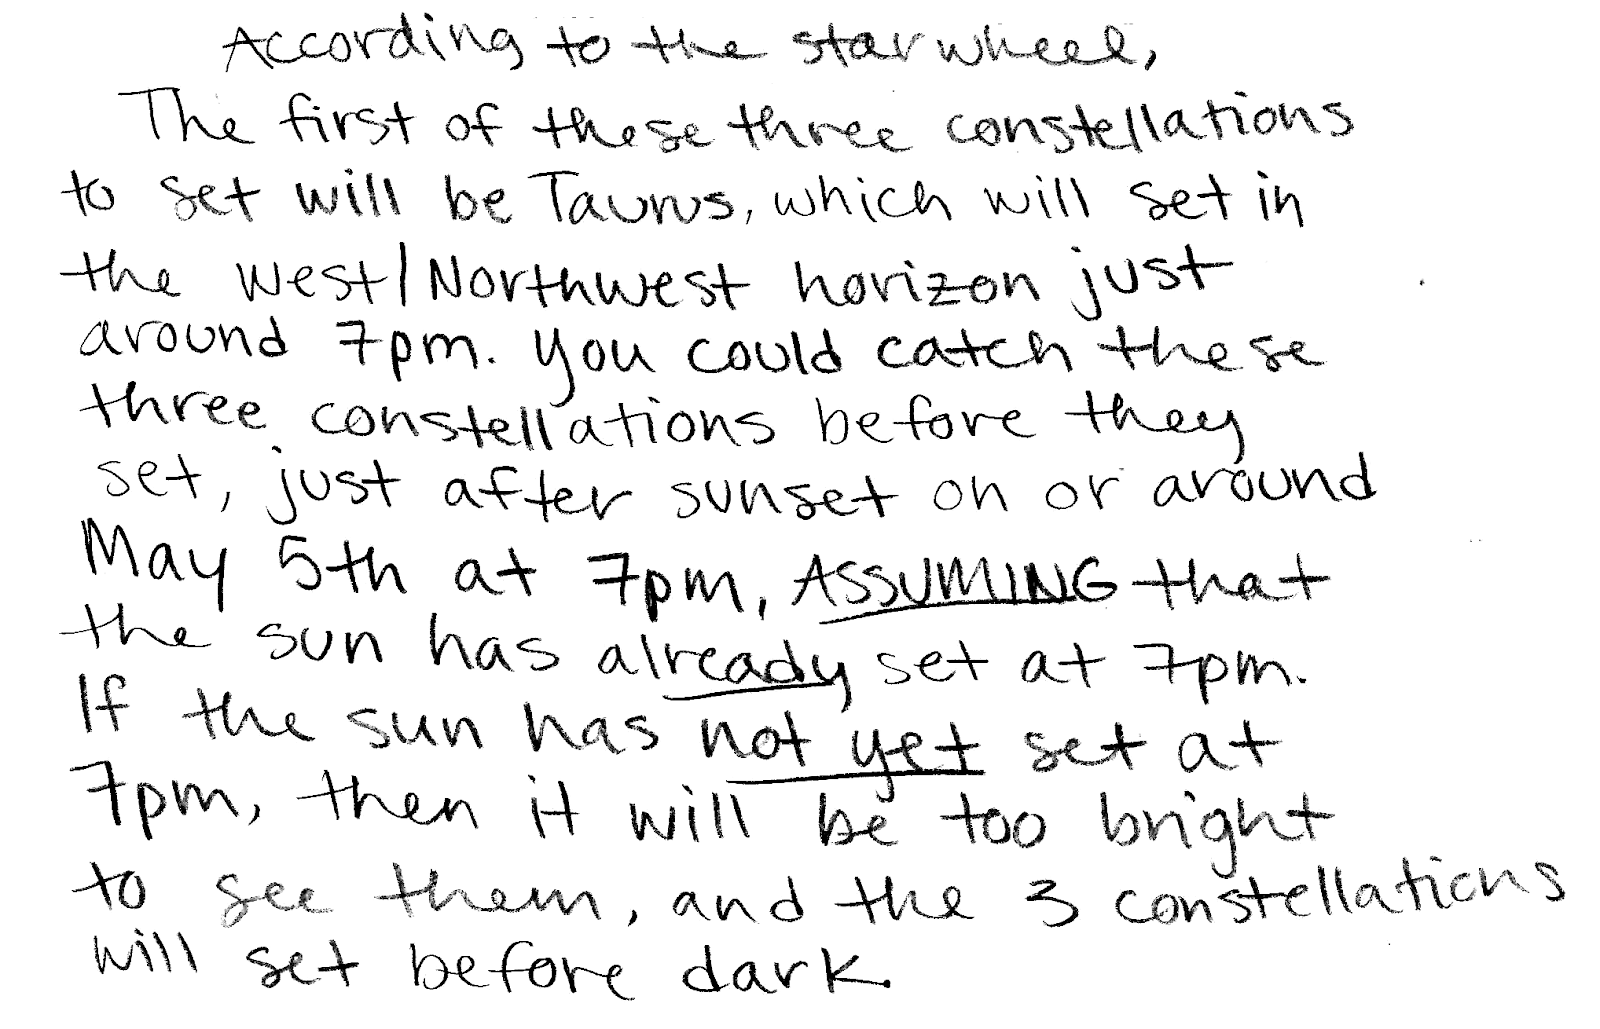 According to the star wheel,
The first of these three constellations
to set will be Taurus, which will set in
the west/Northwest horizon just
around 7pm. You could catch these
three constellations before they
set, just after sunset on or around
May 5th at 7pm, ASSUMING that
the sun has already set at 7pm.
If the sun has not yet set at
7pm, then it will be too bright
to see them, and the 3 constellations
will set before dark.